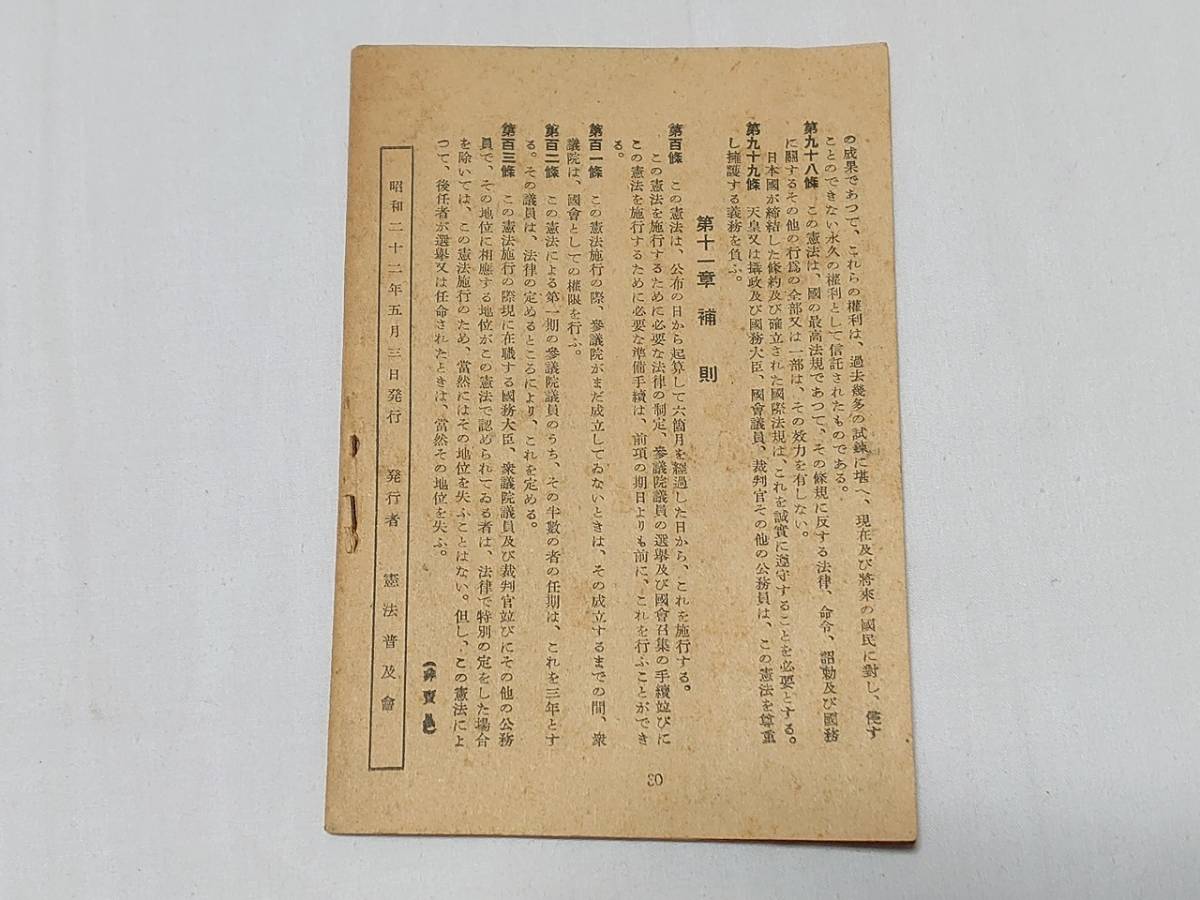 の成果であつて、これらの權利は、過去幾多の試錬に堪へ、現在及び將來の國民に對し、侵す
ことのできない永久の權利として信託されたものである。
第九十八條　この憲法は、國の最高法規であつて、その條規に反する法律、命令、詔勅及び國務
に關するその他の行爲の全部又は一部は、その效力を有しない。
日本國が締結した條約及び確立された國際法規は、これを誠實に遵守することを必要とする。
第九十九條　天皇又は攝政及び國務大臣、國會議員、裁判官その他の公務員は、この憲法を尊重
し擁護する義務を負ふ。
第十一章　補則
第百條　この憲法は、公布の日から起算して六箇月を經過した日から、これを施行する。
この憲法を施行するために必要な法律の制定、參議院議員の選擧及び國會召集の手續竝びに
この憲法を施行するために必要な準備手續は、前項の期日よりも前に、これを行ふことができ
る。
第百一條　この憲法施行の際、參議院がまだ成立してゐないときは、その成立するまでの間、衆
議院は、國會としての權限を行ふ。
第百二條　この憲法による第一期の參議院議員のうち、その半數の者の任期は、これを三年とす
る。その議員は、法律の定めるところにより、これを定める。
第百三條　この憲法施行の際現に在職する國務大臣、衆議院議員及び裁判官竝びにその他の公務
員で、その地位に相應する地位がこの憲法で認められてゐる者は、法律で特別の定をした場合
を除いては、この憲法施行のため、當然にはその地位を失ふことはない。但し、この憲法によ
つて、後任者が選擧又は任命されたときは、當然その地位を失ふ。
(非賣品)
昭和二十二年五月三日発行　発行者　憲法普及會
30